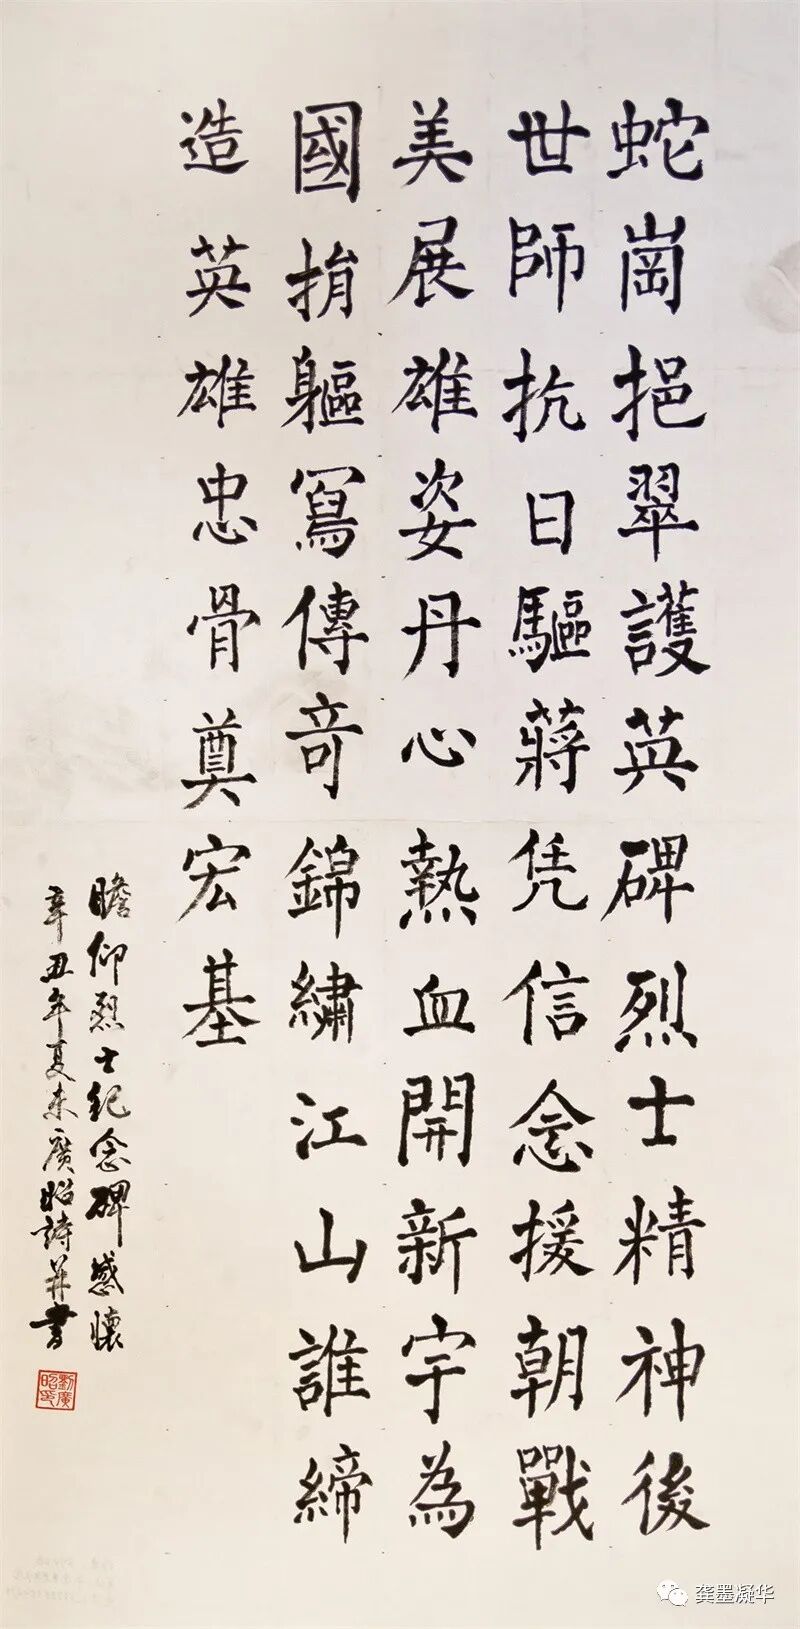 蛇崗挹翠護英碑烈士精神後
世師抗日驅蔣凭信念援朝戰
美展雄姿丹心熱血開新宇為
國捐軀寫傳奇錦繡江山誰締
造英雄忠骨奠宏基
瞻仰烈士纪念碑感懷
辛丑年夏末廣昭詩并書
劉廣昭印
龚墨凝华